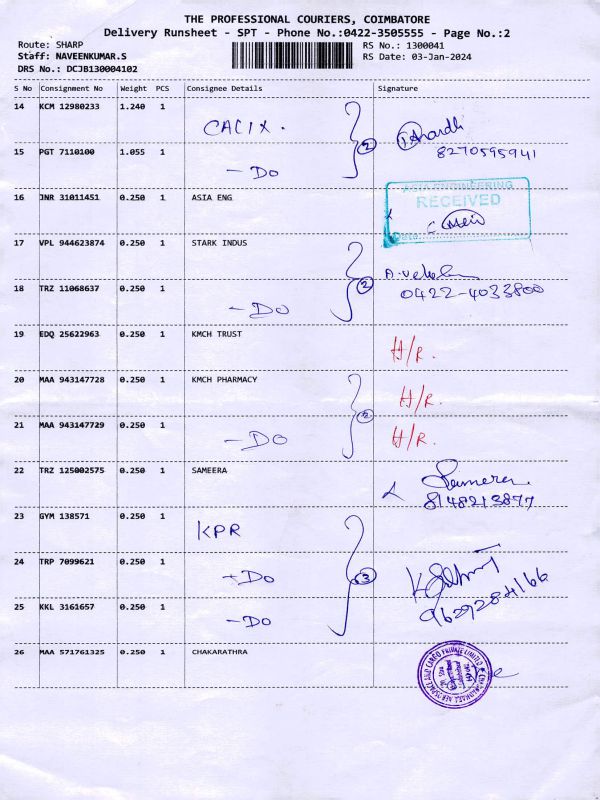 THE PROFESSIONAL COURIERS, COIMBATORE
Delivery Runsheet - SPT - Phone No.:0422-3505555 - Page No.:2
Route: SHARP RS No.: 1300041
Staff: NAVEENKUMAR.S RS Date: 03-Jan-2024
DRS No.: DCJB130004102
S No Consignment No Weight PCS Consignee Details Signature
14 KCM 12980233 1.240 1 CALIX. 2
8270595941
15 PGT 7110100 1.055 1 - DO
16 JNR 31011451 0.250 1 ASIA ENG ASIA ENGINEERING
RECEIVED
Date
17 VPL 944623874 0.250 1 STARK INDUS
18 TRZ 11068637 0.250 1 - DO 2 0422-4033800
19 EDQ 25622963 0.250 1 KMCH TRUST H/R.
20 MAA 943147728 0.250 1 KMCH PHARMACY H/R.
21 MAA 943147729 0.250 1 - DO 2 H/R.
22 TRZ 125002575 0.250 1 SAMEERA Sameera
8148213877
23 GYM 138571 0.250 1 KPR
24 TRP 7099621 0.250 1 - DO 3
9629284166
25 KKL 3161657 0.250 1 - DO
26 MAA 571761325 0.250 1 CHAKARATHRA